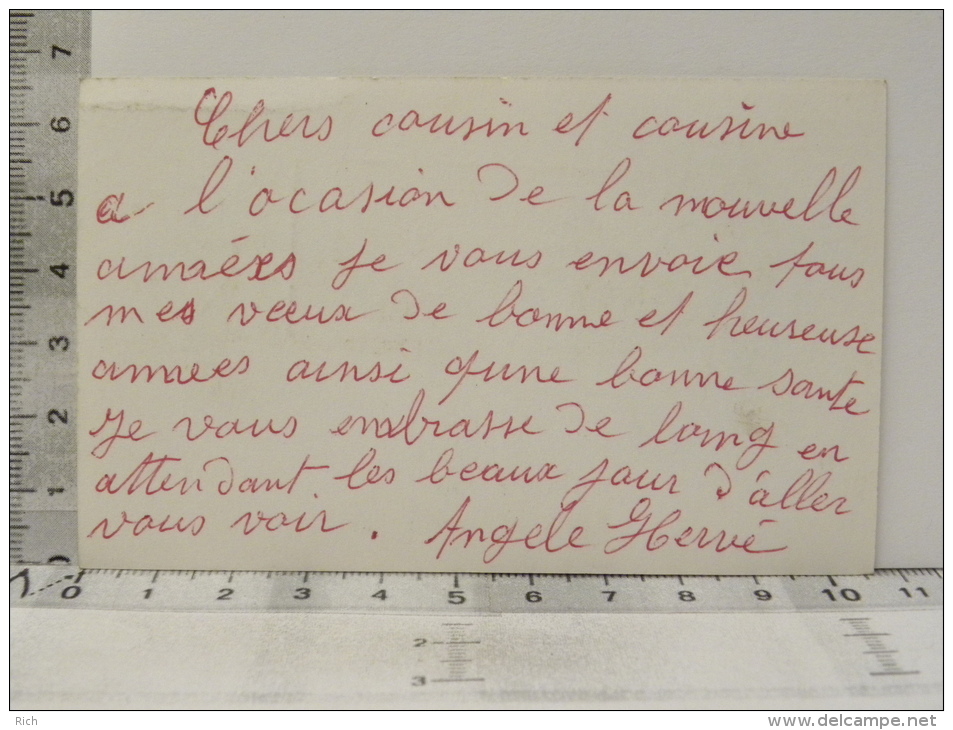 Chers cousin et cousine
a l'ocasion de la nouvelle
années je vous envoie tous
mes vœux de bonne et heureuse
annees ainsi qune bonne sante
Je vous embrasse de loing en
attendant les beaux jour d'aller
vous voir. Angele Hervé
7
6
5
4
3
2
1
0
0 1 2 3 4 5 6 7 8 9 10 11
2
3
Rich
www.delcampe.net